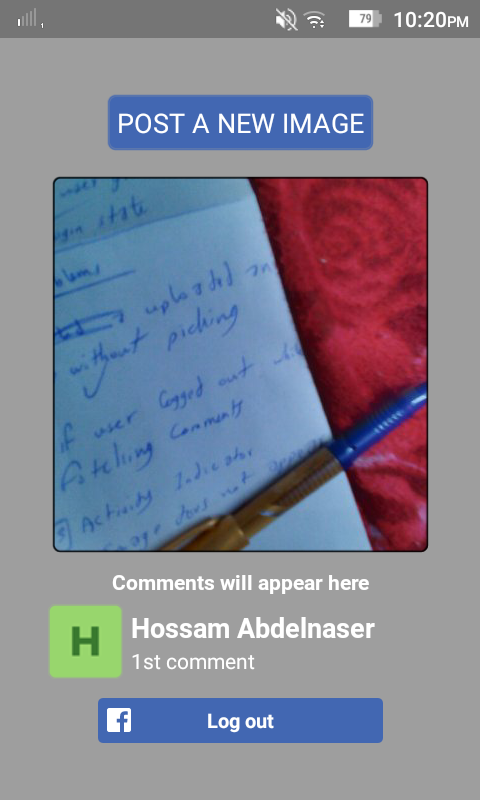 79 10:20PM
POST A NEW IMAGE
state
uploaded
without picking
if user logged out
fetching comments
3) Activity Indicator
does not appear
Comments will appear here
H
Hossam Abdelnaser
1st comment
Log out